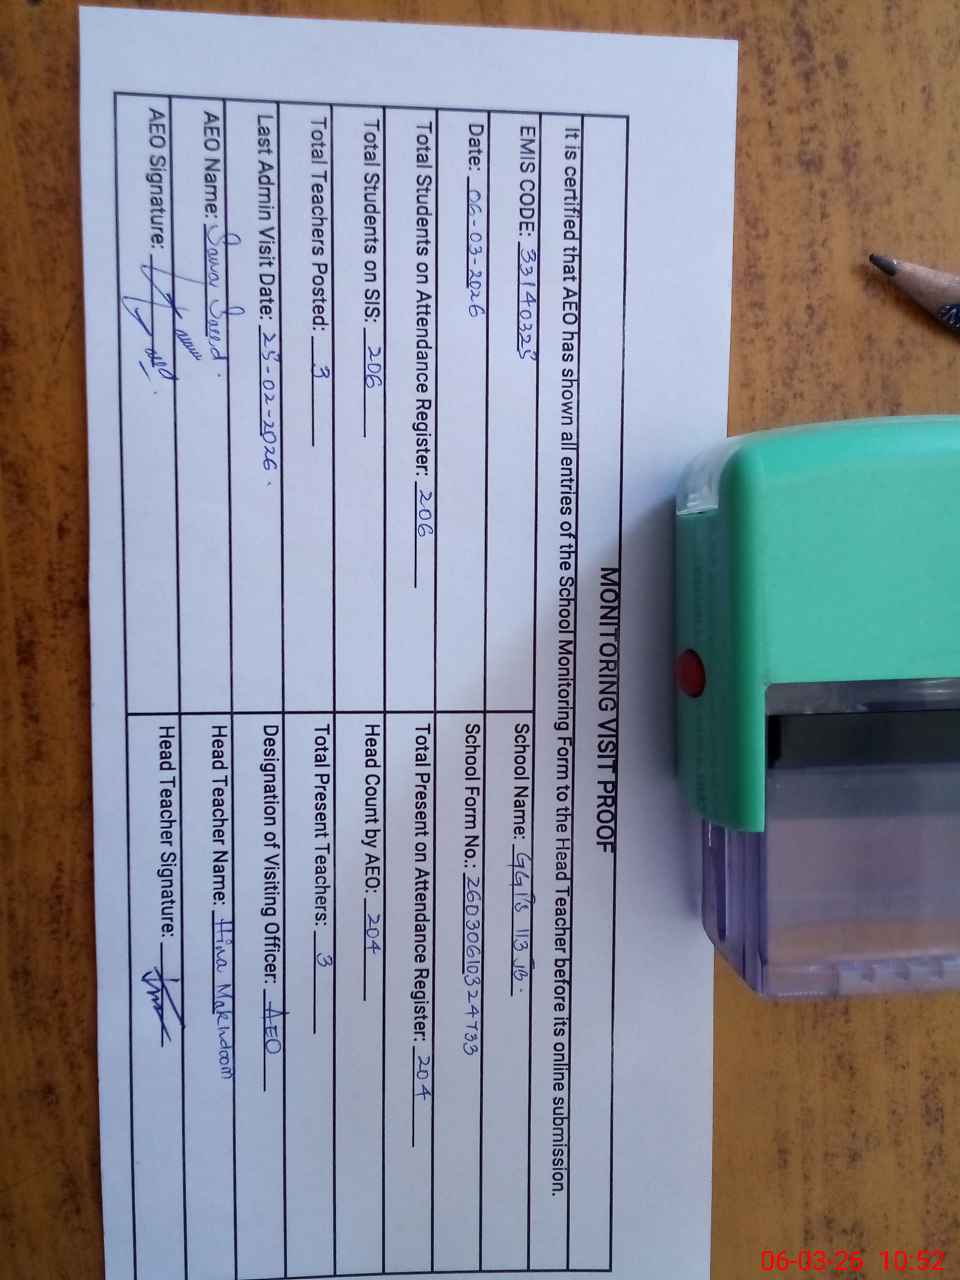 MONITORING VISIT PROOF
It is certified that AEO has shown all entries of the School Monitoring Form to the Head Teacher before its online submission.
EMIS CODE: 33140325 School Name: GGPS 113 JB.
Date: 06-03-2026 School Form No.: 26030610324733
Total Students on Attendance Register: 206 Total Present on Attendance Register: 204
Total Students on SIS: 206 Head Count by AEO: 204
Total Teachers Posted: 3 Total Present Teachers: 3
Last Admin Visit Date: 25-02-2026. Designation of Visiting Officer: AEO
AEO Name: Saeed. Head Teacher Name: Hina Makhdoom
AEO Signature: Head Teacher Signature:
06-03-26 10:52